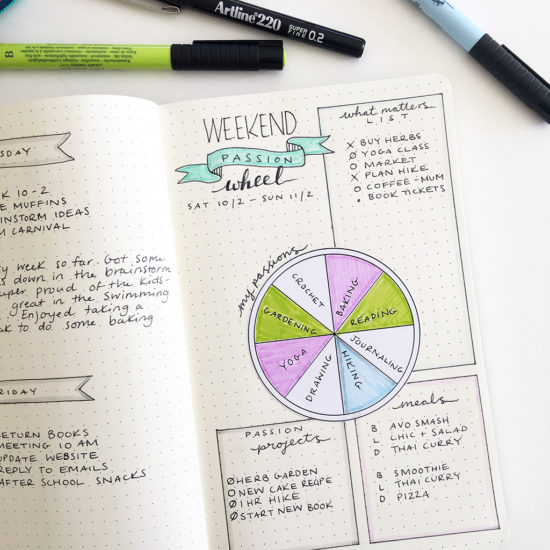 Artline® 220
SUPER FINE 0.2
B
SDAY
K 10-2
E MUFFINS
INSTORM IDEAS
M CARNIVAL
y week so far. Got some
s down in the brainstorm
uper proud of the kids-
great in the swimming
Enjoyed taking a
ak to do some baking
RIDAY
ETURN BOOKS
MEETING 10 AM
UPDATE WEBSITE
REPLY TO EMAILS
AFTER SCHOOL SNACKS
WEEKEND
PASSION
wheel
SAT 10/2 - SUN 11/2
what matters
LIST
X BUY HERBS
Ø YOGA CLASS
O MARKET
X PLAN HIKE
O COFFEE - MUM
• BOOK TICKETS
my passions
CROCHET
BAKING
READING
JOURNALING
HIKING
DRAWING
YOGA
GARDENING
PASSION
projects
Ø HERB GARDEN
O NEW CAKE RECIPE
Ø 1 HR HIKE
Ø START NEW BOOK
meals
B AVO SMASH
L CHIC + SALAD
D THAI CURRY
B SMOOTHIE
L THAI CURRY
D PIZZA